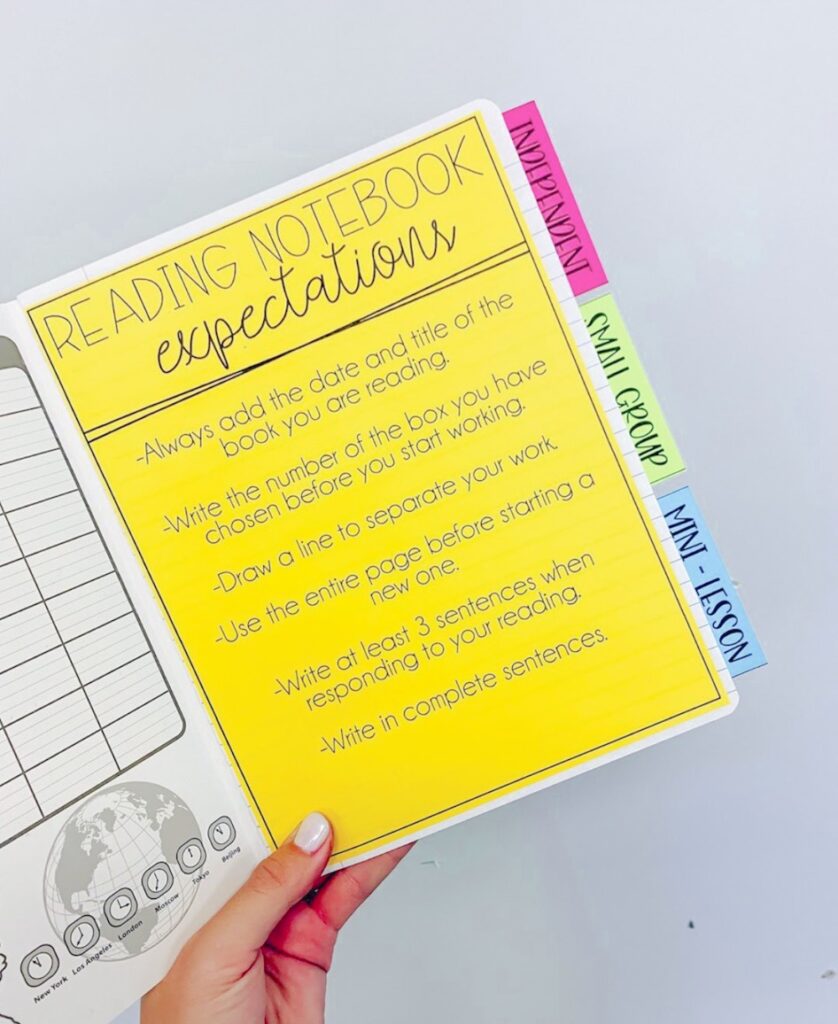 READING NOTEBOOK
expectations
-Always add the date and title of the
book you are reading.
-Write the number of the box you have
chosen before you start working.
-Draw a line to separate your work.
-Use the entire page before starting a
new one.
-Write at least 3 sentences when
responding to your reading.
-Write in complete sentences.
INDEPENDENT
SMALL GROUP
MINI - LESSON
New York
Los Angeles
London
Moscow
Tokyo
Beijing